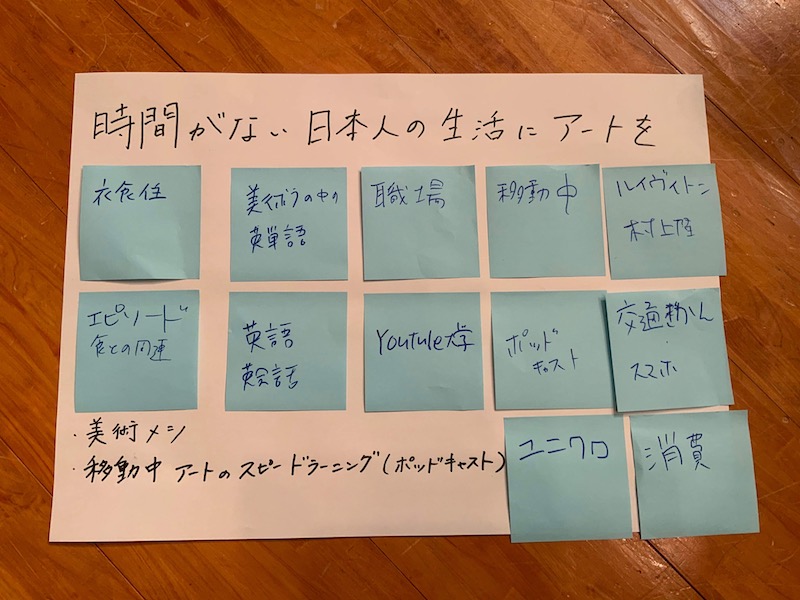 時間がない日本人の生活にアートを
衣食住
美術ラの中の
英単語
職場
移動中
ルイヴィトン
村上隆
エピソード
食との関連
英語
英会話
Youtule大学
ポッド
キャスト
交通きかん
スマホ
・美術メシ
・移動中 アートのスピードラーニング(ポッドキャスト)
ユニクロ
消費